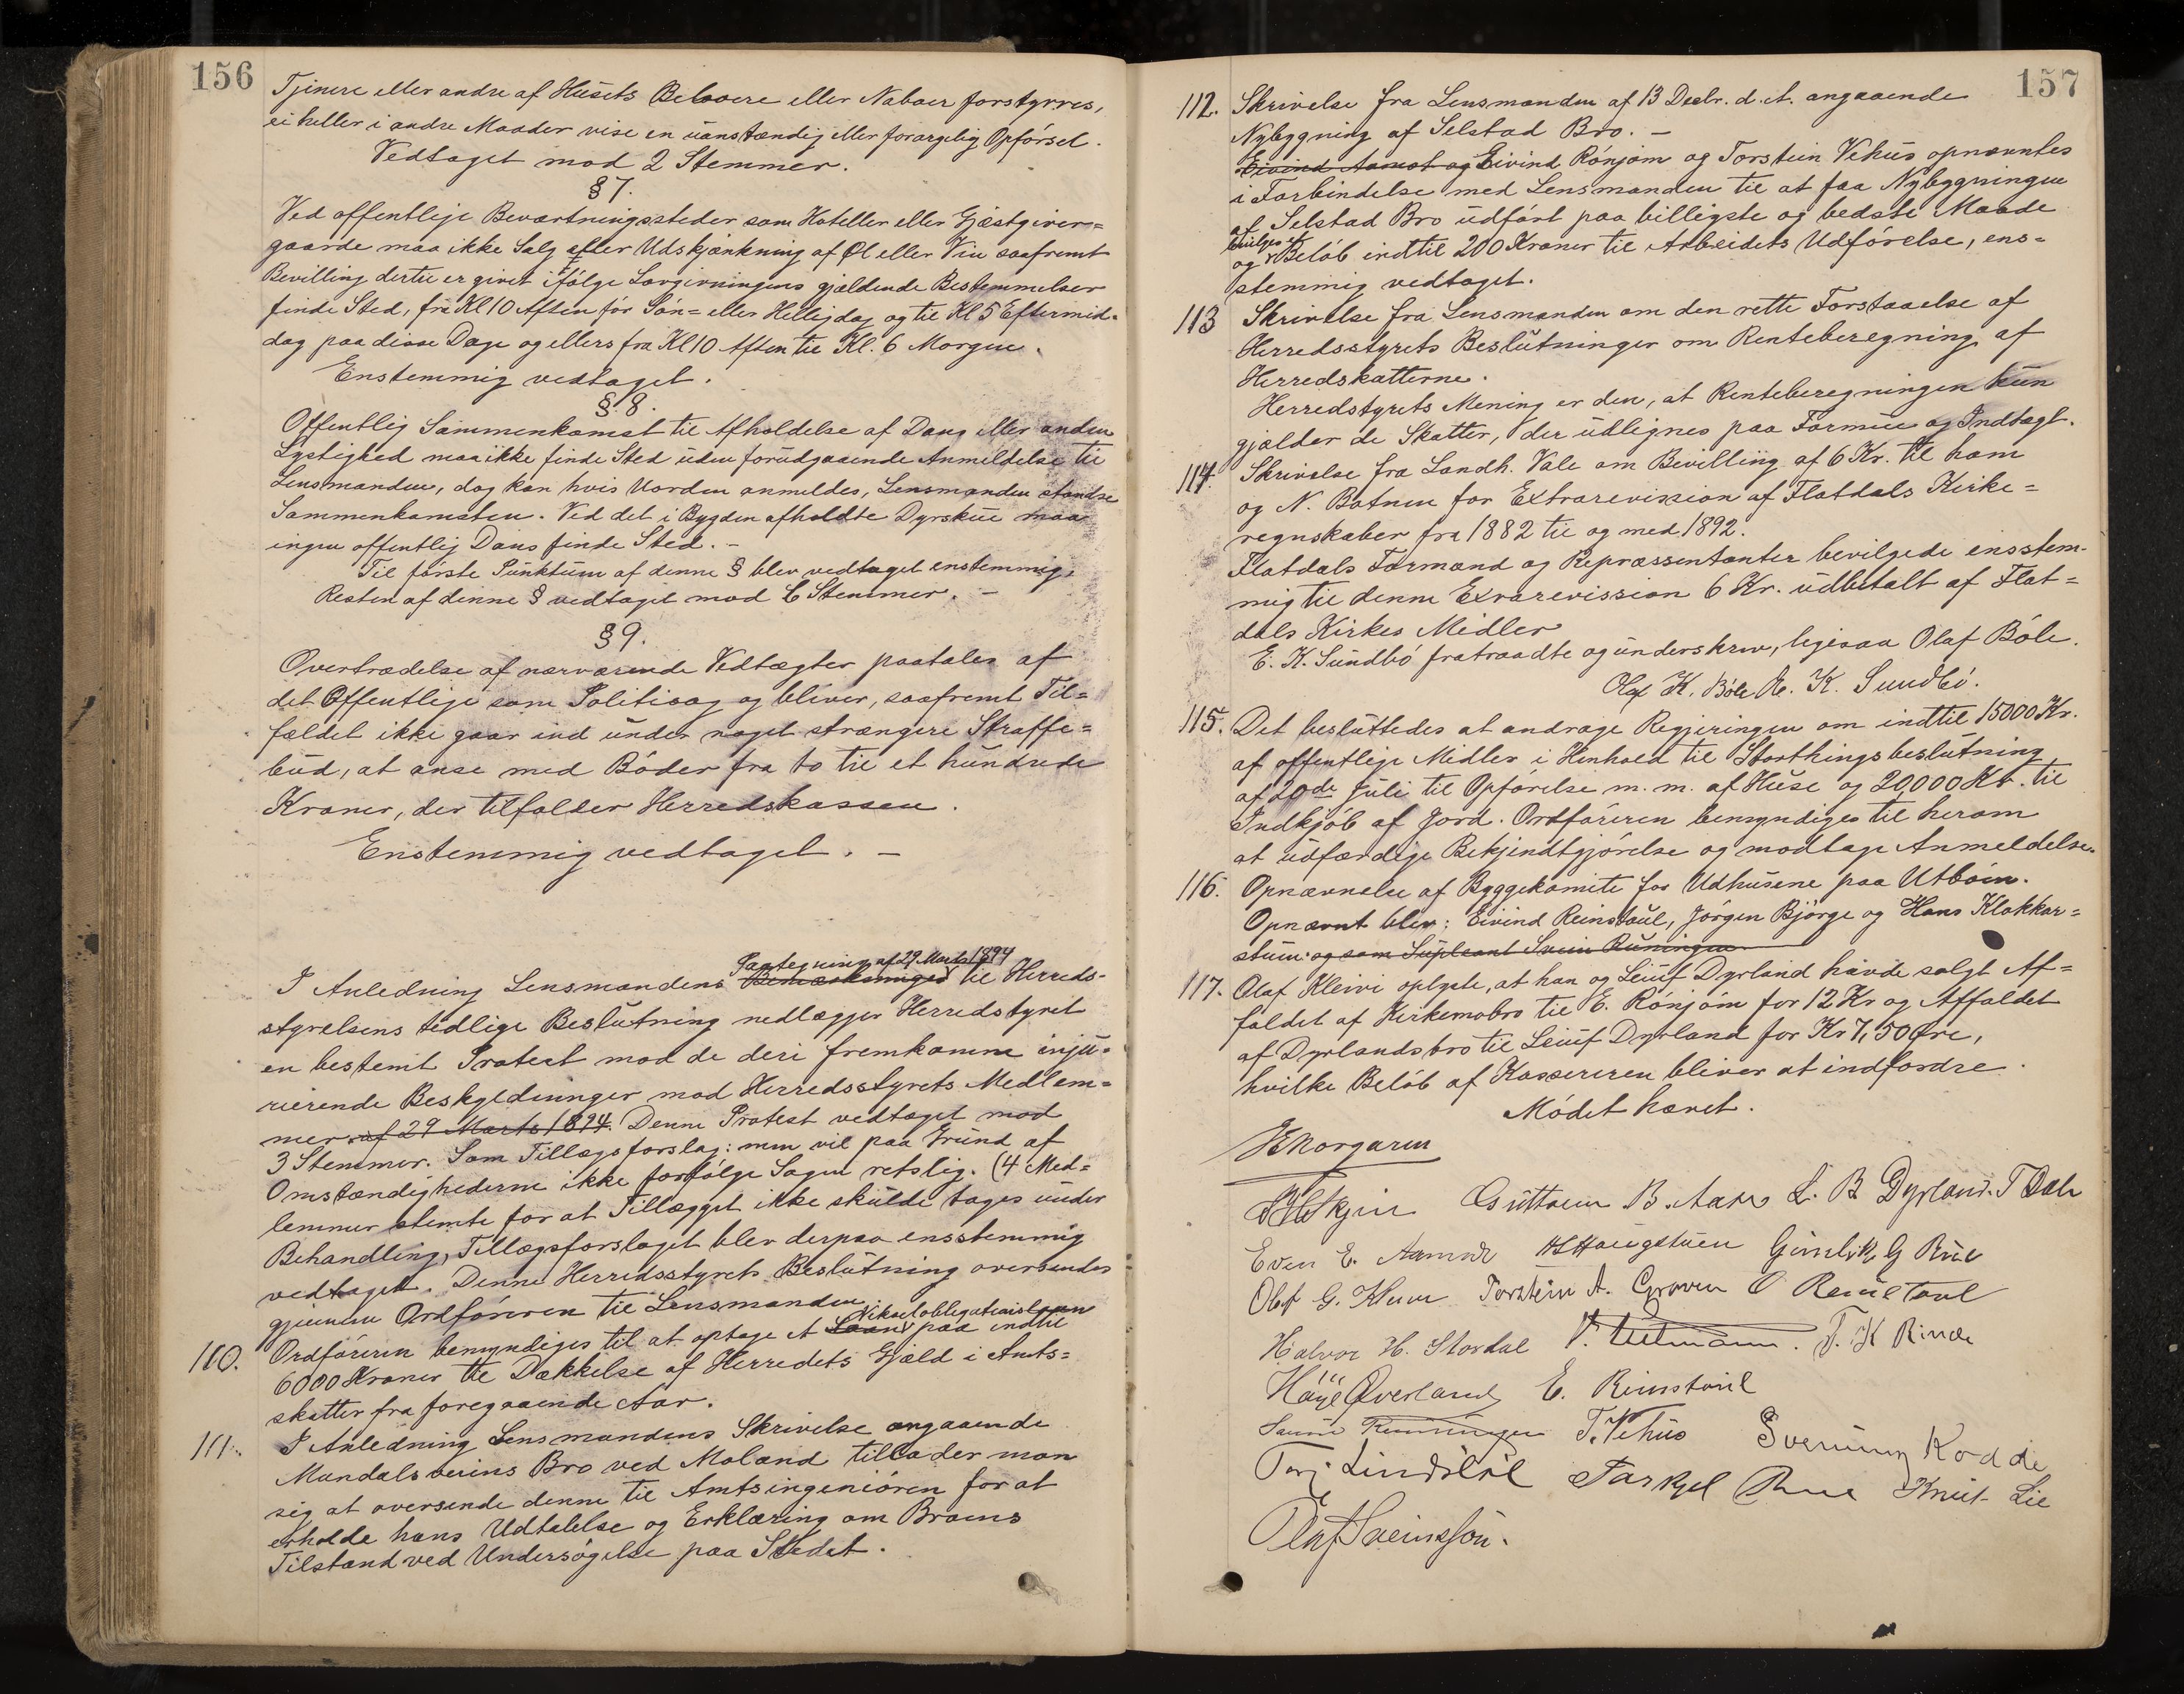 156
Tjenere eller andre af Husets Beboere eller Naboer forstyrres,
ei heller i andre Maader vise en uanstændig eller forargelig Opførsel.
Vedtaget mod 2 Stemmer.
§ 7.
Ved offentlige Beværtningssteder som Hoteller eller Gjæstgiver=
gaarde maa ikke Salg eller Udskjænkning af Øl eller Vin saafremt
Bevilling dertil er givet ifølge Lovgivningens gjældende Bestemmelser
finde Sted, fra Kl 10 Aften før Søn= eller Helligdag og til Kl 5 Eftermid=
dag paa disse Dage og ellers fra Kl 10 Aften til Kl. 6 Morgen.
Enstemmig vedtaget.
§ 8.
Offentlig Sammenkomst til Afholdelse af Dans eller anden
Lystighed maa ikke finde Sted uden forudgaaende Anmeldelse til
Lensmanden, dog kan hvis Uorden anmeldes, Lensmanden standse
Sammenkomsten. Ved det i Bygden afholdte Dyrskue maa
ingen offentlig Dans finde Sted. –
Til første Punktum af denne § blev vedtaget enstemmig.
Resten af denne § vedtaget mod 6 Stemmer. –
§ 9.
Overtrædelse af nærværende Vedtægter paatales af
det Offentlige som Politisag og bliver, saafremt Til=
fældet ikke gaar ind under noget strængere Straffe=
bud, at anse med Bøder fra to til et hundrede
Kroner, der tilfalder Herredskassen.
Enstemmig vedtaget. –
Paategning af 29 Marts 1894
I Anledning Lensmandens Bemærkninger til Herreds-
styrelsens tidlige Beslutning nedlægger Herredstyret
en bestemt Protest mod de deri fremkomne inju=
rierende Beskyldninger mod Herredsstyrets Medlem=
mer af 29 Marts 1894. Denne Protest vedtaget mod
3 Stemmer. Som Tillægsforslag: men vil paa Grund af
Omstændighederne ikke forfølge Sagen retslig. (4 Med=
lemmer stemte for at Tillægget ikke skulde tages under
Behandling, Tillægsforslaget blev derpaa ensstemmig
vedtaget. Denne Herredsstyrets Beslutning oversendes
gjennem Ordføreren til Lensmanden.
110. Ordføreren bemyndiges til at optage et Laan paa indtil
6000 Kroner til Dækkelse af Herredets Gjæld i Amts=
skatter fra foregaaende Aar.
111. I Anledning Lensmandens Skrivelse angaaende
Mandalsveiens Bro ved Moland tillader man
sig at oversende denne til Amtsingeniøren for at
erholde hans Udtalelse og Erklæring om Broens
Tilstand ved Undersøgelse paa Stedet.
157
112. Skrivelse fra Lensmanden af 13 Decbr. d. A. angaaende
Nybygning af Selstad Bro. –
Eivind Aamot og Eivind Rónjom og Torstein Vehus opnævntes
i Forbindelse med Lensmanden til at faa Nybygningen
af Selstad Bro udført paa billigste og bedste Maade
bevilges
og Beløb indtil 200 Kroner til Arbeidets Udførelse, ens=
stemmig vedtaget.
113 Skrivelse fra Lensmanden om den rette Forstaaelse af
Herredsstyrets Beslutninger om Renteberegning af
Herredskatterne.
Herredstyrets Mening er den, at Renteberegningen kun
gjælder de Skatter, der udlignes paa Formue og Indtægt.
114. Skrivelse fra Landh. Vale om Bevilling af 6 Kr. til ham
og N. Botnen for Extrarevission af Flatdals Kirke=
regnskaber fra 1882 til og med 1892.
Flatdals Formænd og Repræssentanter bevilgede ensstem-
mig til denne Exrarevission 6 Kr. udbetalt af Flat=
dals Kirkes Midler
E. K. Sundbø fratraadte og underskrev, ligesaa Olaf Bøle.
Olaf K. Bøle E. K. Sundbø.
115. Det besluttedes at andrage Regjeringen om indtil 15000 Kr.
af offentlige Midler i Henhold til Storthingsbeslutning
af 20de Juli til Opførelse m. m. af Huse og 20,000 Kr. til
Indkjøb af Jord. Ordføreren bemyndiges til herom
at udfærdige Bekjendtgjørelse og modtage Anmeldelse.
116. Opnævnelse af Byggekomite for Udhusene paa Utbøen.
Opnævnt blev: Eivind Reinstaul, Jørgen Bjørge og Hans Klokkar=
stuen og som Supleant Svein Runingen
117. Olaf Kleivi oplyste, at han og Leiuf Dyrland havde solgt Af=
faldet af Kirkemobro til E. Rónjom for 12 Kr og Affaldet
af Dyrlandsbro til Leiuf Dyrland for Kr 7,50 Øre,
hvilke Beløb af Kassereren bliver at indfordre.
Mødet hævet.
Guttorm B. Aase L. B Dyrland. T Dale
Even E. Aamodt H Haugstuen Gunleik G Rue
Olaf G. Kleivi Torstein A. Groven O Reinstaul
Halvor H. Stordal T. K Rinde
Høye Øverland E. Reinstaul
T. Vehus Sveinung Kodde
Torj Lindsløl Tarkjel Rue Knut Lie
Olaf Sveinsson.